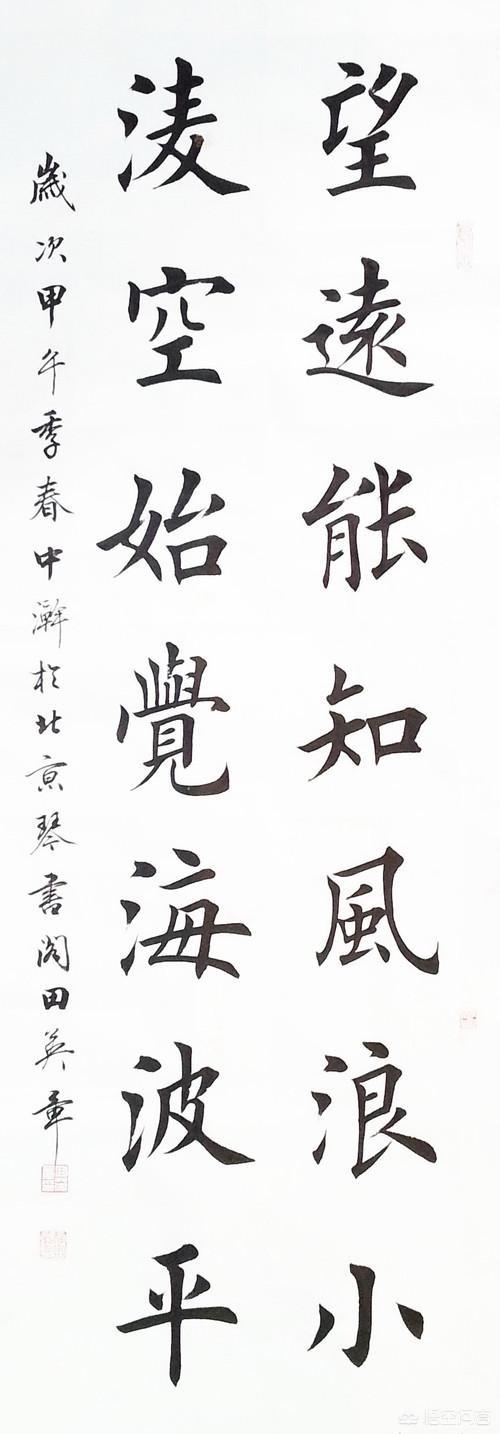 望遠能知風浪小
淩空始覺海波平
歲次甲午季春中澣於北京琴書閣田英章
悟空问答